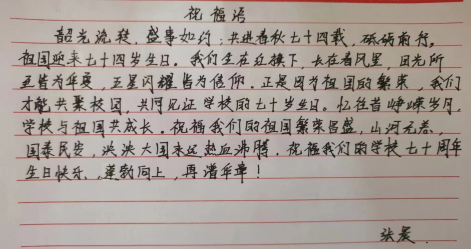 祝福语
韶光流转，盛事如约；共进春秋七十四载，砥砺前行。
祖国迎来七十四岁生日。我们生在红旗下，长在春风里，目光所
至皆为华夏，五星闪耀皆为信仰。正是因为祖国的繁荣，我们
才能共聚校园，共同见证学校的七十岁生日。忆往昔峥嵘岁月，
学校与祖国共成长。祝福我们的祖国繁荣昌盛，山河无恙，
国泰民安，泱泱大国永远热血沸腾。祝福我们的学校七十周年
生日快乐，蓬勃向上，再谱华章！
张晨